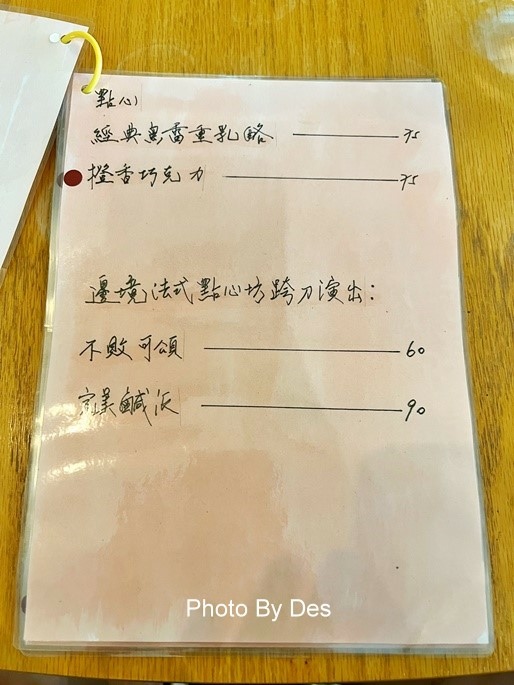 點心
經典烏雷重乳酪 75
橙香巧克力 75
邊境法式點心坊跨刀演出：
不敗可頌 60
完美鹹派 90
Photo By Des